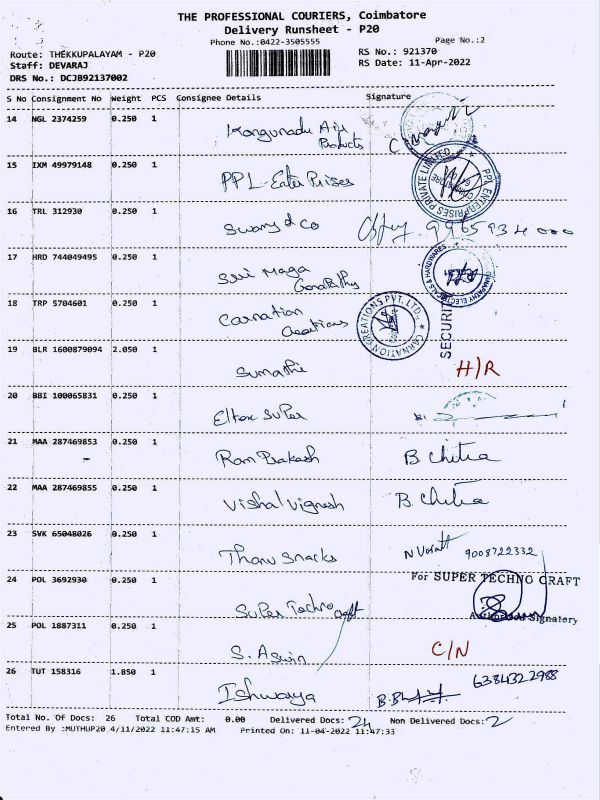 THE PROFESSIONAL COURIERS, Coimbatore
Delivery Runsheet - P20
Phone No.:0422-3505555 Page No.:2
Route: THEKKUPALAYAM - P20 RS No.: 921370
Staff: DEVARAJ RS Date: 11-Apr-2022
DRS No.: DCJB92137002
S No Consignment No Weight PCS Consignee Details Signature
14 NGL 2374259 0.250 1 Kongunadu Air Products
15 IXM 49979148 0.250 1 PPL-Enter Prises
PPL ENTERPRISES PRIVATE LIMITED
16 TRL 312930 0.250 1 Swamy & Co
17 HRD 744049495 0.250 1 Sri Maga Ganapathy
GANAPATHY ELECTRICALS & HARDWARES
18 TRP 5704601 0.250 1 Carnation Creations
CARNATION CREATIONS PVT. LTD.,
SECURIT
19 BLR 1600879094 2.050 1 Sumathi H/R
20 BBI 100065831 0.250 1 Elter Super
21 MAA 287469853 0.250 1 Ram Prakash B. Chitra
22 MAA 287469855 0.250 1 Vishal Vignesh B. Chitra
23 SVK 65048026 0.250 1 Thanu Snacks 9008722332
24 POL 3692930 0.250 1 Super Techno Craft
For SUPER TECHNO CRAFT
Authorised Signatory
25 POL 1887311 0.250 1 S. Aswin C/N
26 TUT 158316 1.850 1 Ishwarya 6384322988
Total No. Of Docs: 26 Total COD Amt: 0.00 Delivered Docs: 24 Non Delivered Docs: 2
Entered By :MUTHUP20 4/11/2022 11:47:15 AM Printed On: 11-04-2022 11:47:33